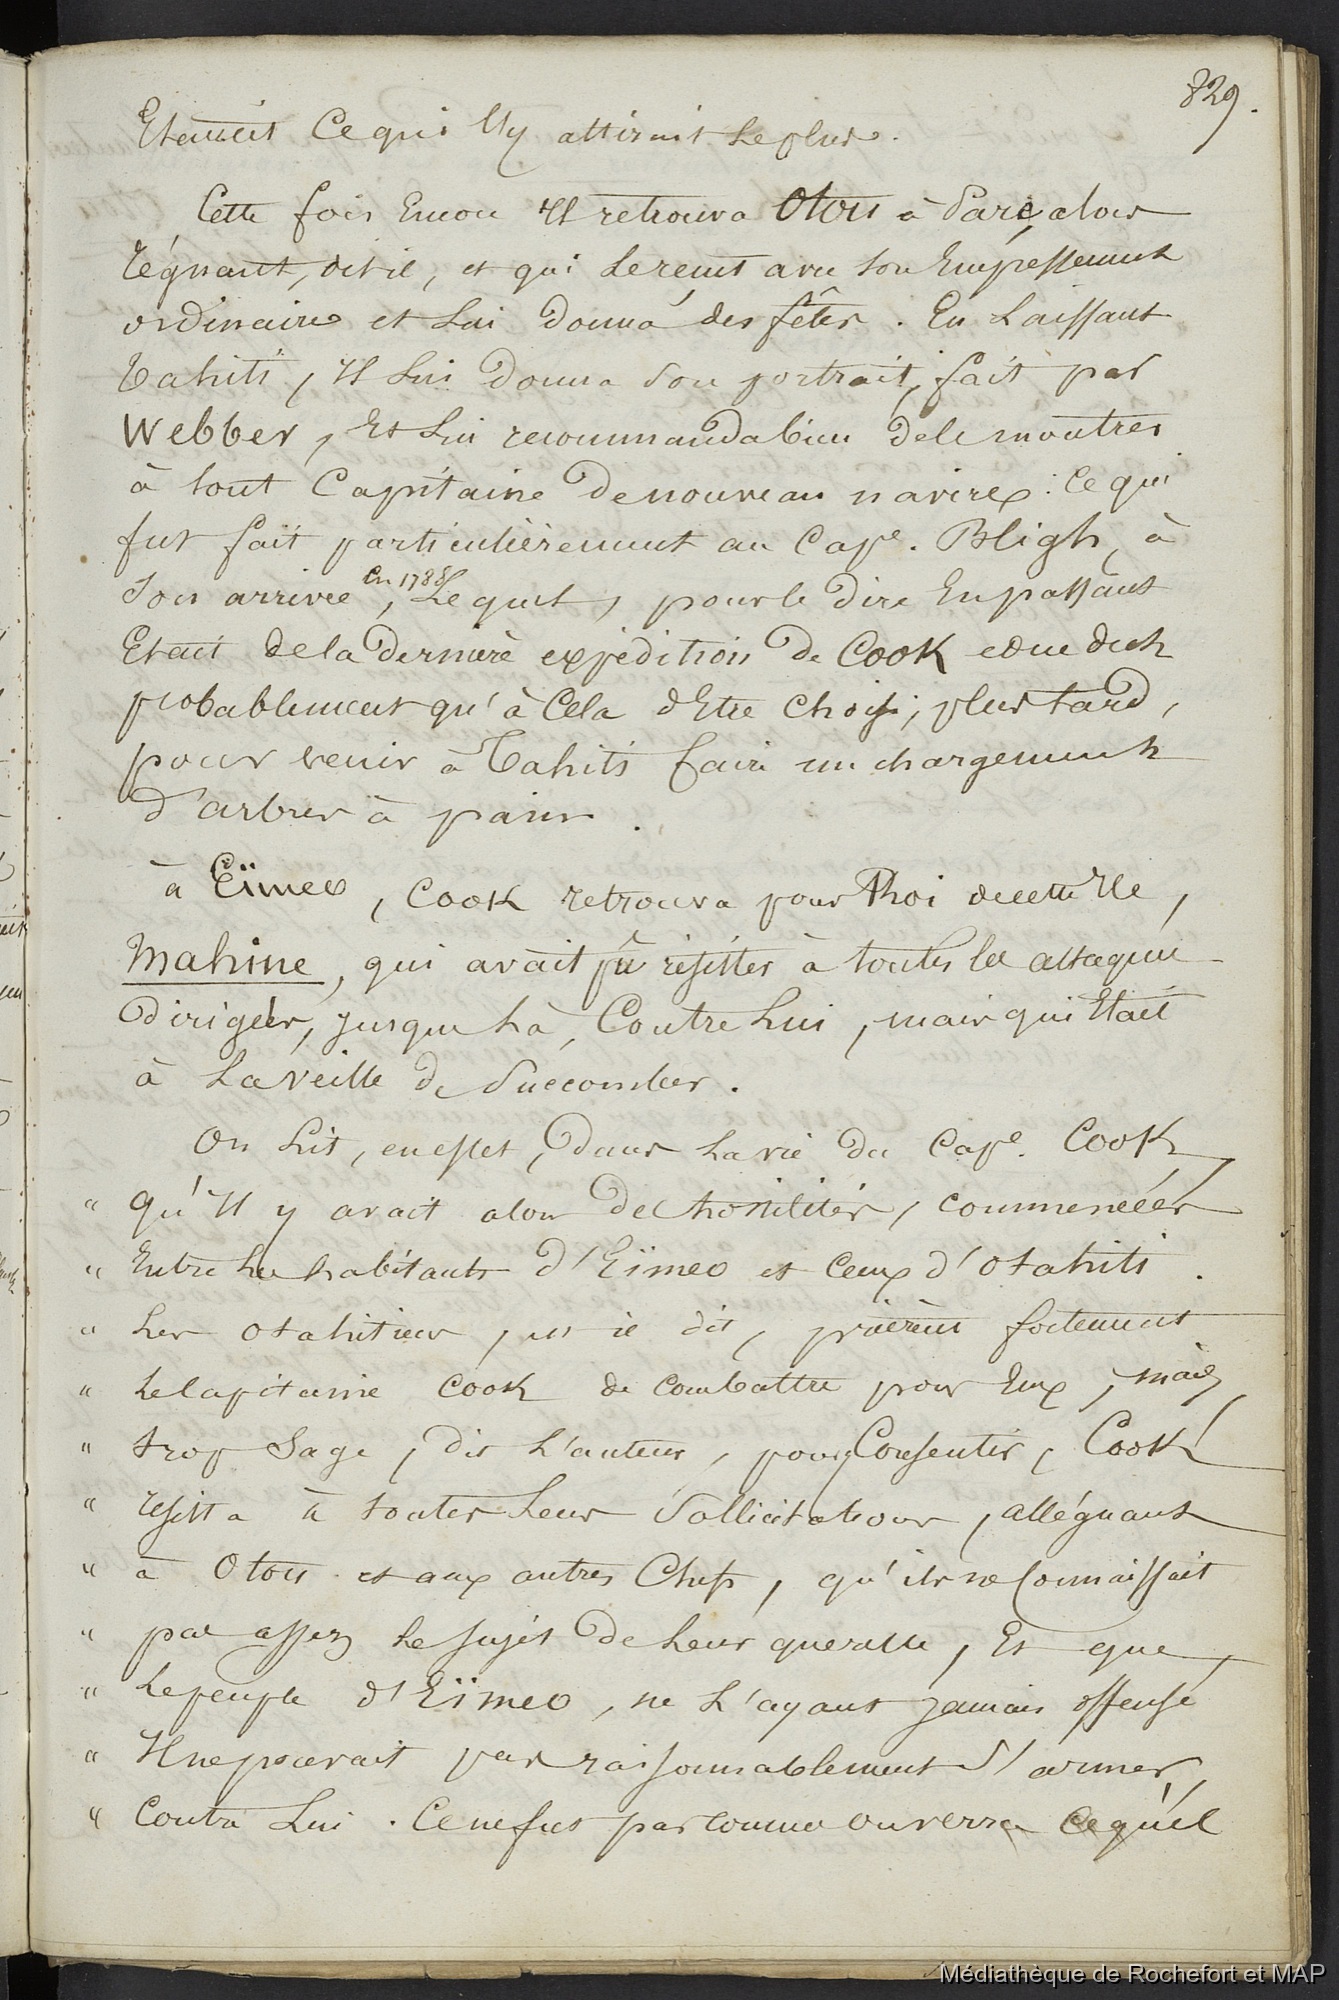 829.
Etait ce qui l'y attirait le plus.
Cette fois encore Il retrouva Otou à Paré, alors
régnant, dit il, et qui le reçut avec son Empressement
ordinaire et lui donna des fêtes. En Laissant
Tahiti, Il lui donna son portrait, fait par
Webber, Et lui recommanda bien de le montrer
à tout Capitaine de nouveau navire : Ce qui
fut fait particulièrement au Cape. Bligh, à
Son arrivée, en 1788, Lequel, pour le dire En passant
Etait de la dernière expédition de Cook et ne dut
probablement qu'à Cela d'Etre choisi, plus tard,
pour venir à Tahiti faire un chargement
d'arbres à pain.
à Eïmeo, Cook retrouva pour Roi de cette Ile,
Mahine, qui avait pû résister à toutes les attaques
dirigées, jusque là, Contre Lui, mais qui Etait
à La veille de Succomber.
On Lit, en effet, Dans La vie du Cape. Cook,
" qu'Il y avait alors des hostilités, commencées
" Entre Les habitants d'Eïmeo et Ceux d'Otahiti.
" Les Otahitiens, dit, prièrent fortement
" Le Capitaine Cook de combattre pour Eux, mais,
" trop Sage, dit L'auteur, pour y Consentir, Cook
" résista à toutes Leurs Sollicitations, alléguant
" à Otou et aux autres Chefs, qu'il ne Connaissait
" pas assez Le sujet de Leur querelle, Et que,
" Le peuple d'Eïmeo, ne L'ayant jamais offensé
" Il ne pouvait pas raisonnablement S'armer
" Contre Lui. Ce ne fut pas comme on verra ce qu'il
Médiathèque de Rochefort et MAP